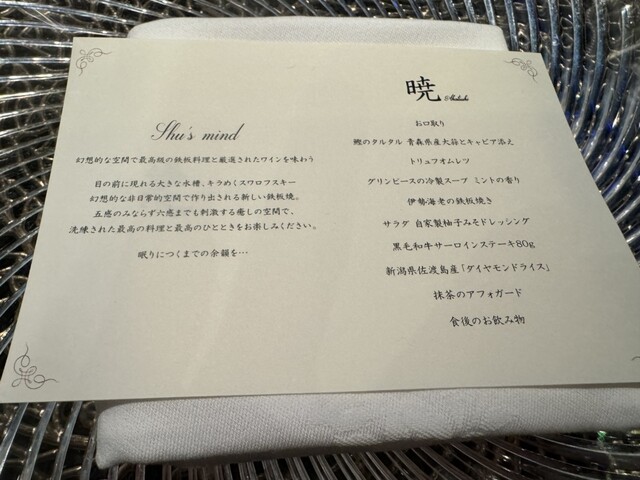 Shu's mind
幻想的な空間で最高級の鉄板料理と厳選されたワインを味わう
目の前に現れる大きな水槽、キラめくスワロフスキー
幻想的な非日常的空間で作り出される新しい鉄板焼。
五感のみならず六感までも刺激する癒しの空間で、
洗練された最高の料理と最高のひとときをお楽しみください。
眠りにつくまでの余韻を…
暁 Akatsuki
お口取り
鰹のタルタル 青森県産大蒜とキャビア添え
トリュフオムレツ
グリンピースの冷製スープ ミントの香り
伊勢海老の鉄板焼き
サラダ 自家製柚子みそドレッシング
黒毛和牛サーロインステーキ80g
新潟県佐渡島産「ダイヤモンドライス」
抹茶のアフォガード
食後のお飲み物